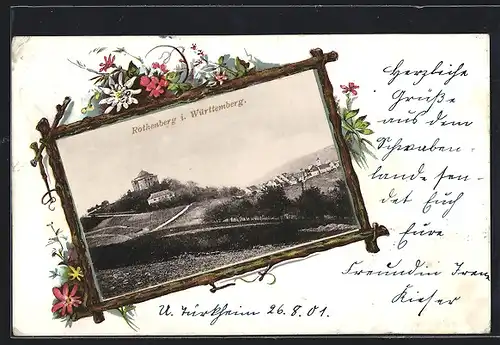 Rothenberg i. Württemberg.
Herzliche
Grüße
aus dem
Schwaben-
lande sen-
det Euch
Eure
Freundin Irene
Kieser
U. Türkheim 26.8.01.